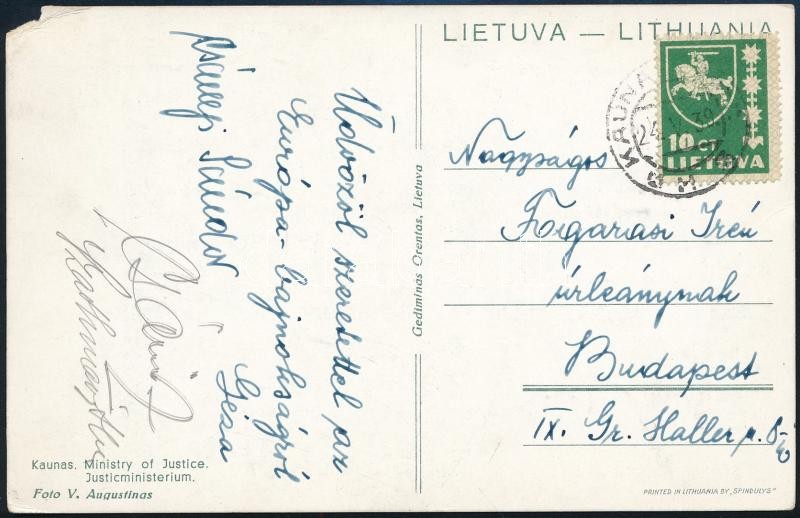 LIETUVA — LITHUANIA
KAUNAS
24. V. 39
10 CT
LIETUVA
Üdvözöl szeretettel az
Európa-bajnokságról
Géza
Sándor
Nagyságos
Fogarasi Irén
úrleánynak
Budapest
IX. Gr. Haller u. 8-
Gediminas Orentas, Lietuva
Kaunas. Ministry of Justice.
Justicministerium.
Foto V. Augustinas
PRINTED IN LITHUANIA BY „SPINDULYS"